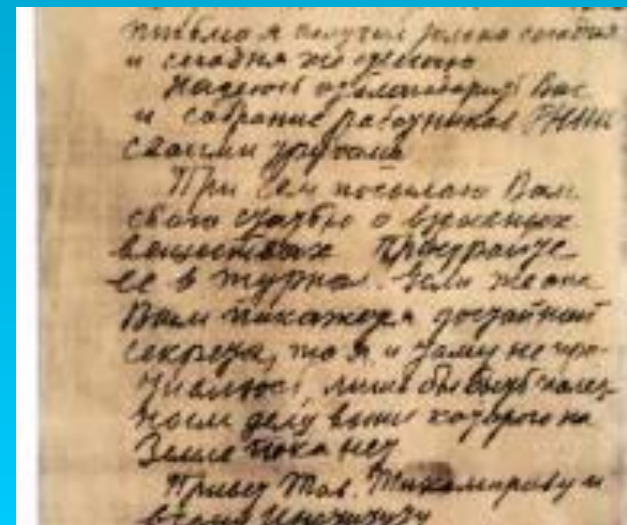 письмо я получил только сегодня
и сегодня же отвечаю
Надеюсь отблагодарить Вас
и собрание работников РНИИ
своими трудами
При сем посылаю Вам
свою статью о взрывных
веществах
ее в журнал. Если же она
Вам покажется достойной
секрета, то я и тому не про-
тивлюсь, лишь бы быть полез-
ным делу выше которого на
Земле пока нет
Привет Тов. Тихомирову и
всему Институту